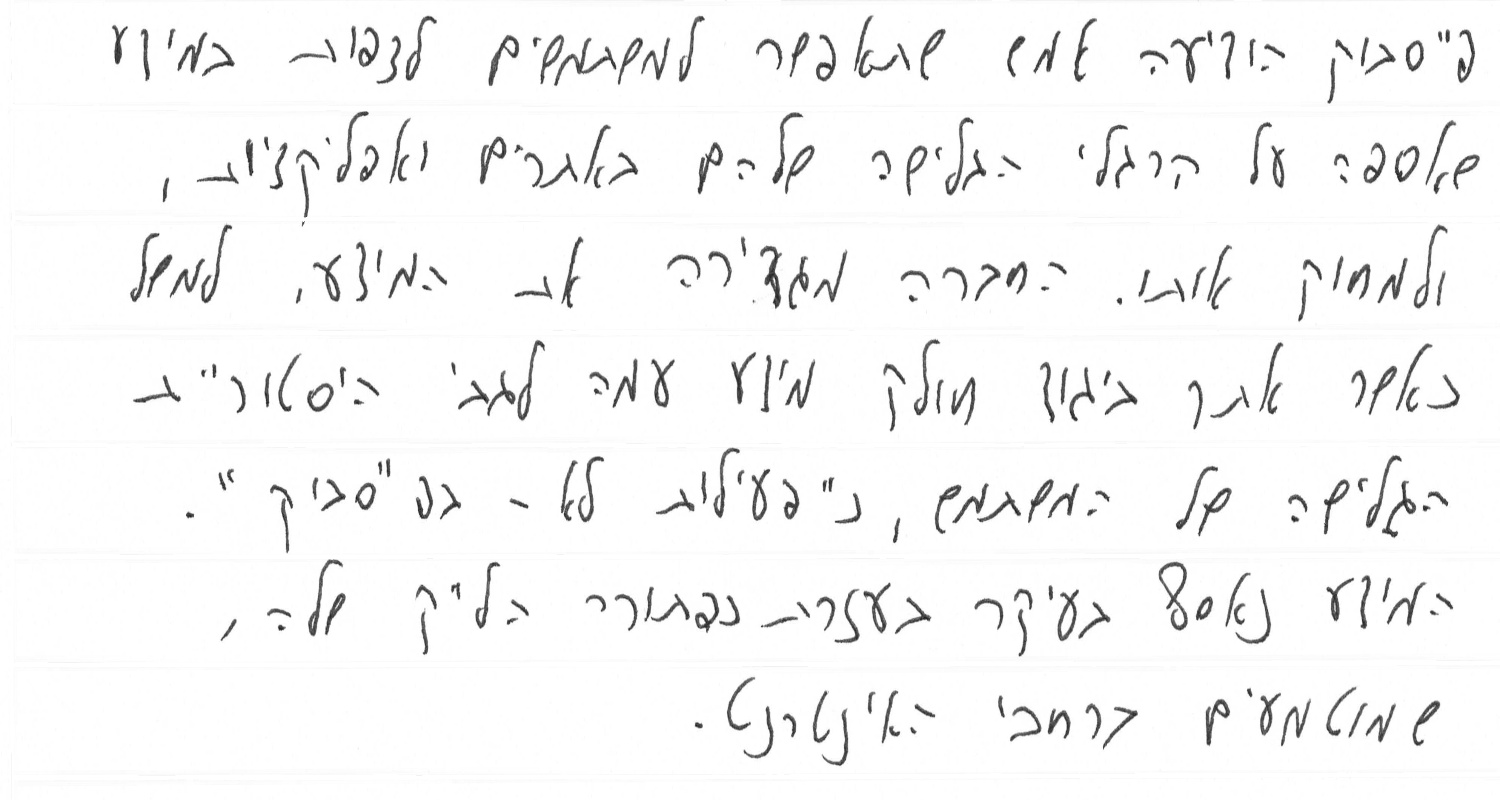 פייסבוק הודיעה אמש שתאפשר למשתמשים לצפות במידע
שאספה על הרגלי הגלישה שלהם באתרים ואפליקציות,
ולמחוק אותו. החברה מגדירה את המידע, למשל
כאשר אתר ביגוד חולק מידע עמה לגבי היסטוריית
הגלישה של המשתמש, כ"פעילות לא - בפייסבוק".
המידע נאסף בעיקר בעזרת כפתורה הלייק שלה,
שמוטמעים ברחבי האינטרנט.